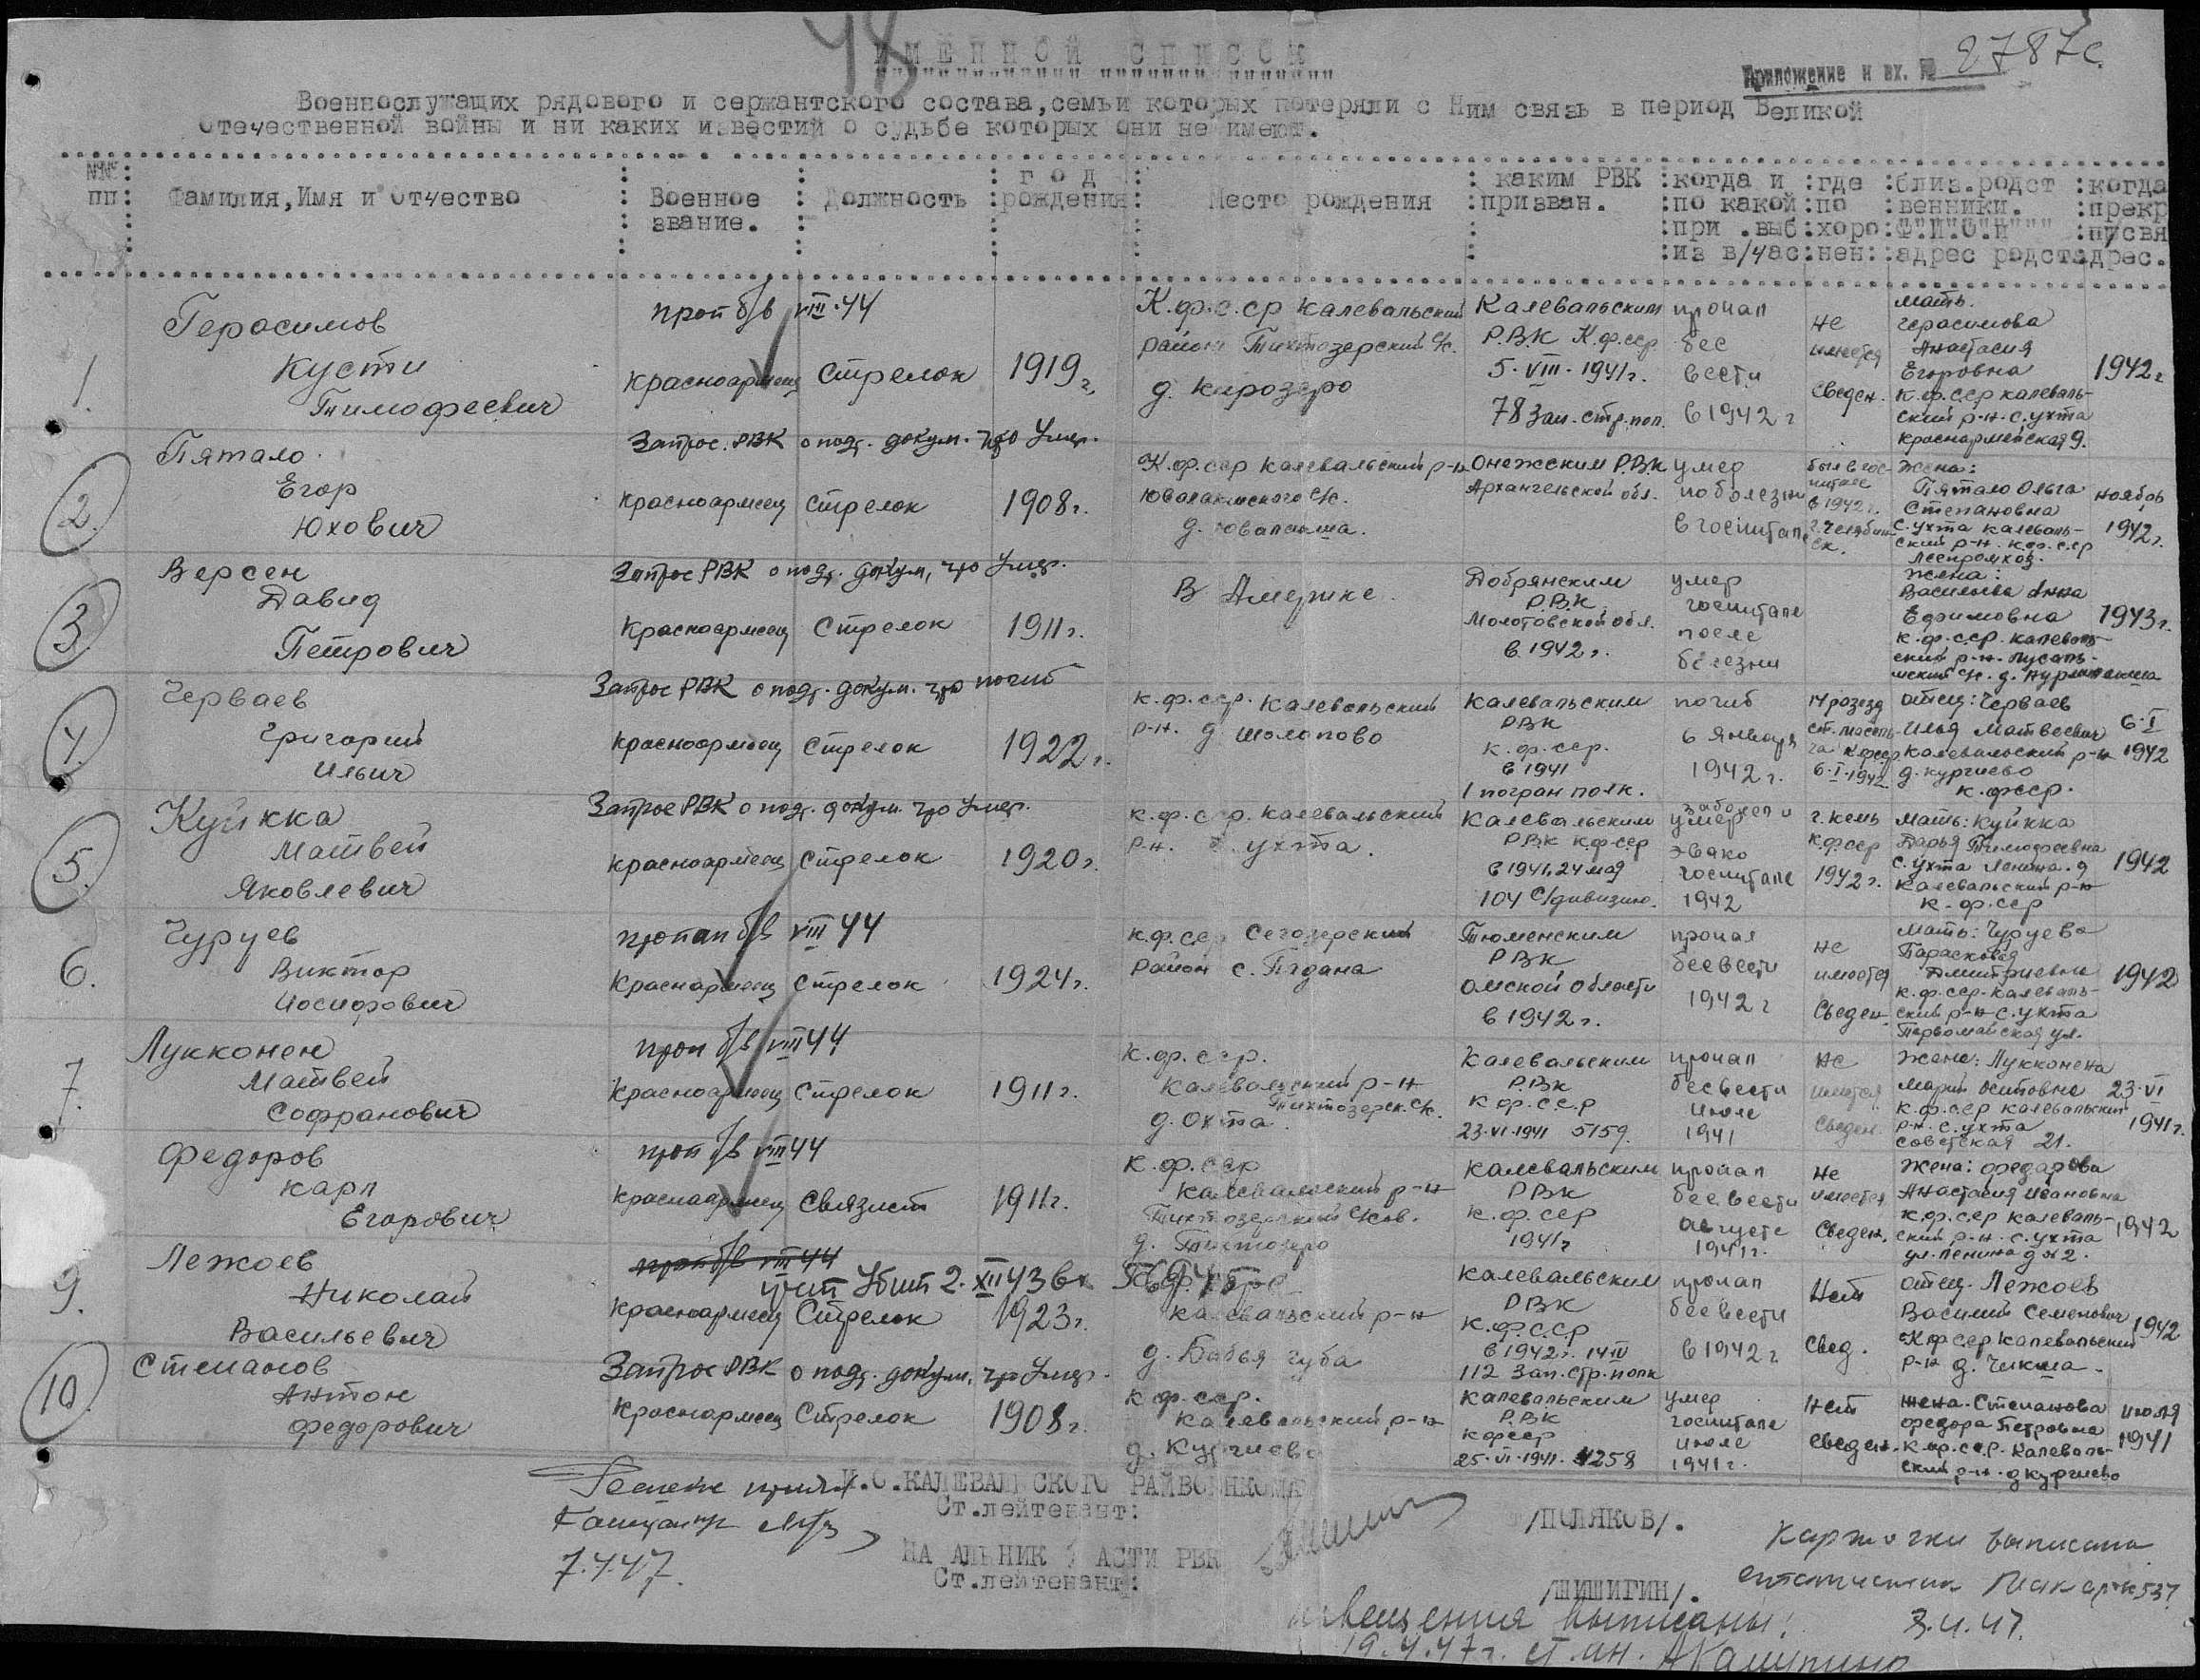 48
ИМЕННОЙ СПИСОК
Приложение к вх. № 2787с.
Военнослужащих рядового и сержантского состава, семьи которых потеряли с Ним связь в период Великой
Отечественной войны и ни каких известий о судьбе которых они не имеют.
№№ пп
Фамилия, Имя и Отчество
Военное звание.
Должность
год рождения
Место рождения
каким РВК призван.
когда и по какой при .выб из в/час
где по хоро нен:
близ.родст венники. Ф"И"О"И""" адрес родст
когда прекр п/свя адрес.
1.
Герасимов
Кусти
Тимофеевич
проп б/в VIII·44
красноармеец
стрелок
1919 г.
К.ф.с.ср калевальский
район Тихтозерский с/с.
д. Кирозеро
Калевальским
Р.В.К К.ф.сср
5·VIII·1941г.
78 Зап. стр. пол.
пропал
бес
вести
в 1942 г
не
имеется
сведен.
мать.
герасимова
Анастасия
Егоровна
К.ф.с.ср калеваль-
ский р-н. с. ухта
красноармейская 9.
1942 г
2.
Пятало
Егор
Юхович
Запрос. РВК о подт. докум. что умер.
красноармеец
стрелок
1908 г.
К.ф.сср калевальский р-н
Ювалакшского с/с.
д. Ювалакша.
Онежским Р.В.К
Архангельской обл.
умер
по болезни
в госпитале
был в гос-
питале
в 1942 г.
г. Челябин
ск.
жена:
Пятало Ольга
Степановна
с. ухта калеваль-
ский р-н. к.ф.с.ср
леспромхоз.
ноябрь
1942 г.
3.
Версен
Давид
Петрович
Запрос РВК о подт. докум, что умер.
красноармеец
стрелок
1911 г.
В Америке.
Добрянским
Р.В.К.
Молотовской обл.
в 1942 г.
умер
госпитале
после
болезни
жена:
Васильева Анна
Ефимовна
к.ф.сср. калеваль-
ский р-н.
1943 г.
4.
Черваев
Григорий
Ильич
Запрос РВК о подт. докум. что погиб
красноармеец
стрелок
1922 г.
к.ф.сср. калевальский
р-н. д. шолопово
калевальским
РВК
к.ф.сср.
в 1941
1 погран полк.
погиб
6 января
1942 г.
14 розезд
6·I·1942
отец: Черваев
Илья Матвеевич
Калевальский р-н
д. кургиево
к.фсср.
6·I
1942
5.
Куйкка
Матвей
Яковлевич
Запрос РВК о подт. докум. что умер.
красноармеец
стрелок
1920 г.
к.ф.сср. калевальский
р-н. с. ухта.
калевальским
РВК кф-сср
в 1941, 24 мая
104 с/дивизию.
умер
эвако
госпитале
1942
г. кемь
кфсср
1942 г.
мать: куйкка
Дарья Тимофеевна
с. ухта Ленина.
калевальский р-н
к.ф.сср
1942
6.
Чуруев
Виктор
Иосифович
пропал б/в VIII 44
красноармеец
стрелок
1924 г.
к.ф.сср Сегозерский
район с. Падана
Тюменским
РВК
омской области
в 1942 г.
пропал
бесвести
1942 г
не
имеется
сведен.
мать: Чуруева
Парасковья
Дмитриевна
к.ф.сср. калеваль-
ский р-н с. ухта
Первомайская ул.
1942
7.
Лукконен
Матвей
Софранович
проп б/в VIII 44
красноармеец
стрелок
1911 г.
к.ф.сср.
калевальский р-н
Тихтозерск. с/с.
д. Охта.
калевальским
Р.Вк
к.ф.с.ср
23·VI·1941 5159.
пропал
бесвести
июле
1941
не
имеется
сведен.
жена: Лукконена
Мария Осиповна
к.ф.сср калевальский
р-н. с. ухта
советская 21.
23·VI
1941 г.
Федоров
Карп
Егорович
проп б/в VIII 44
красноармеец
связист
1911 г.
к.ф.сср
калевальский р-н
Тихтозерский с/сов.
д. Тихтозеро
калевальским
РВк
к.ф.сср
1941 г
пропал
бесвести
августе
1941 г.
не
имеется
сведен.
жена: федарова
Анастасия Ивановна
к.ф.с.ср калеваль-
ский р-н. с. ухта
ул. Ленина д № 2.
1942
9.
Лежоев
Николай
Васильевич
проп б/в VIII 44
убит 2.XII 43
красноармеец
Стрелок
1923 г.
калевальский р-н
д. Бабья губа
калевальским
РВК
к.ф.с.ср
в 1942 г. 14 IV
112 Зап. стр. полк
пропал
бесвести
в 1942 г
нет
свед.
отец. Лежоев
Василий Семенович
к.ф сср калевальский
р-н д. Чикша.
1942
10.
Степанов
Антон
Федорович
Запрос РВК о подт. докум. что умер.
красноармеец
Стрелок
1908 г.
к.ф.сср.
калевальский р-н
д. Кургиево
калевальским
Р.Вк
кфсср
25·VI·1941. 4258
умер
госпитале
июле
1941 г.
нет
сведен.
жена. Степанова
федора Петровна
к.ф.с.ср. калеваль-
ский р-н. д кургиево
июля
1941
И.О. КАЛЕВАЛЬСКОГО РАЙВОЕНКОМА
Ст.лейтенант:
/ПОЛЯКОВ/.
НАЧАЛЬНИК ЧАСТИ РВК
Ст.лейтенант:
/ШИШИГИН/.
7.4.47.
Карточки выписана
3.4.47.
извещения выписаны:
19.4.47г.